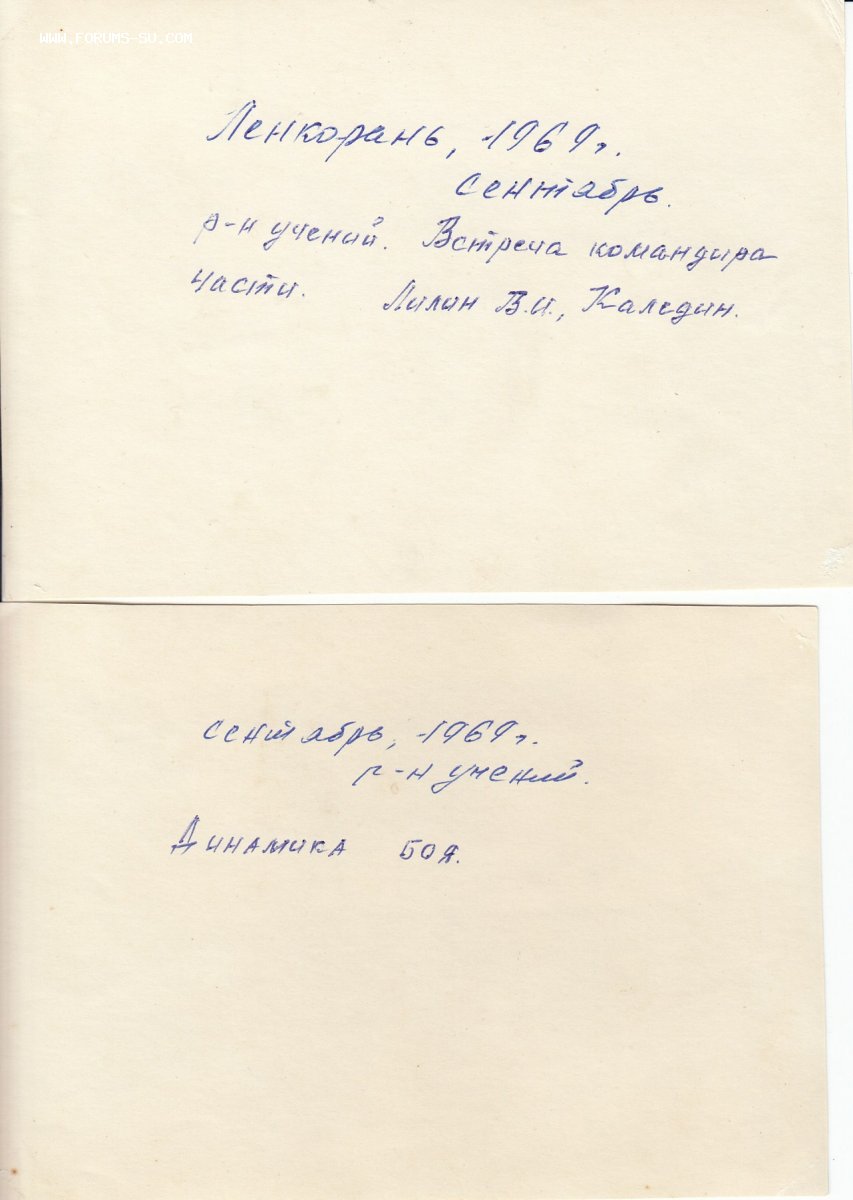 WWW.FORUMS-SU.COM
Ленкорань, 1969г.
сентябрь.
р-н учений. Встреча командира
части. Лилин В.И., Каледин.
сентябрь, 1969г.
р-н учений.
Динамика боя.